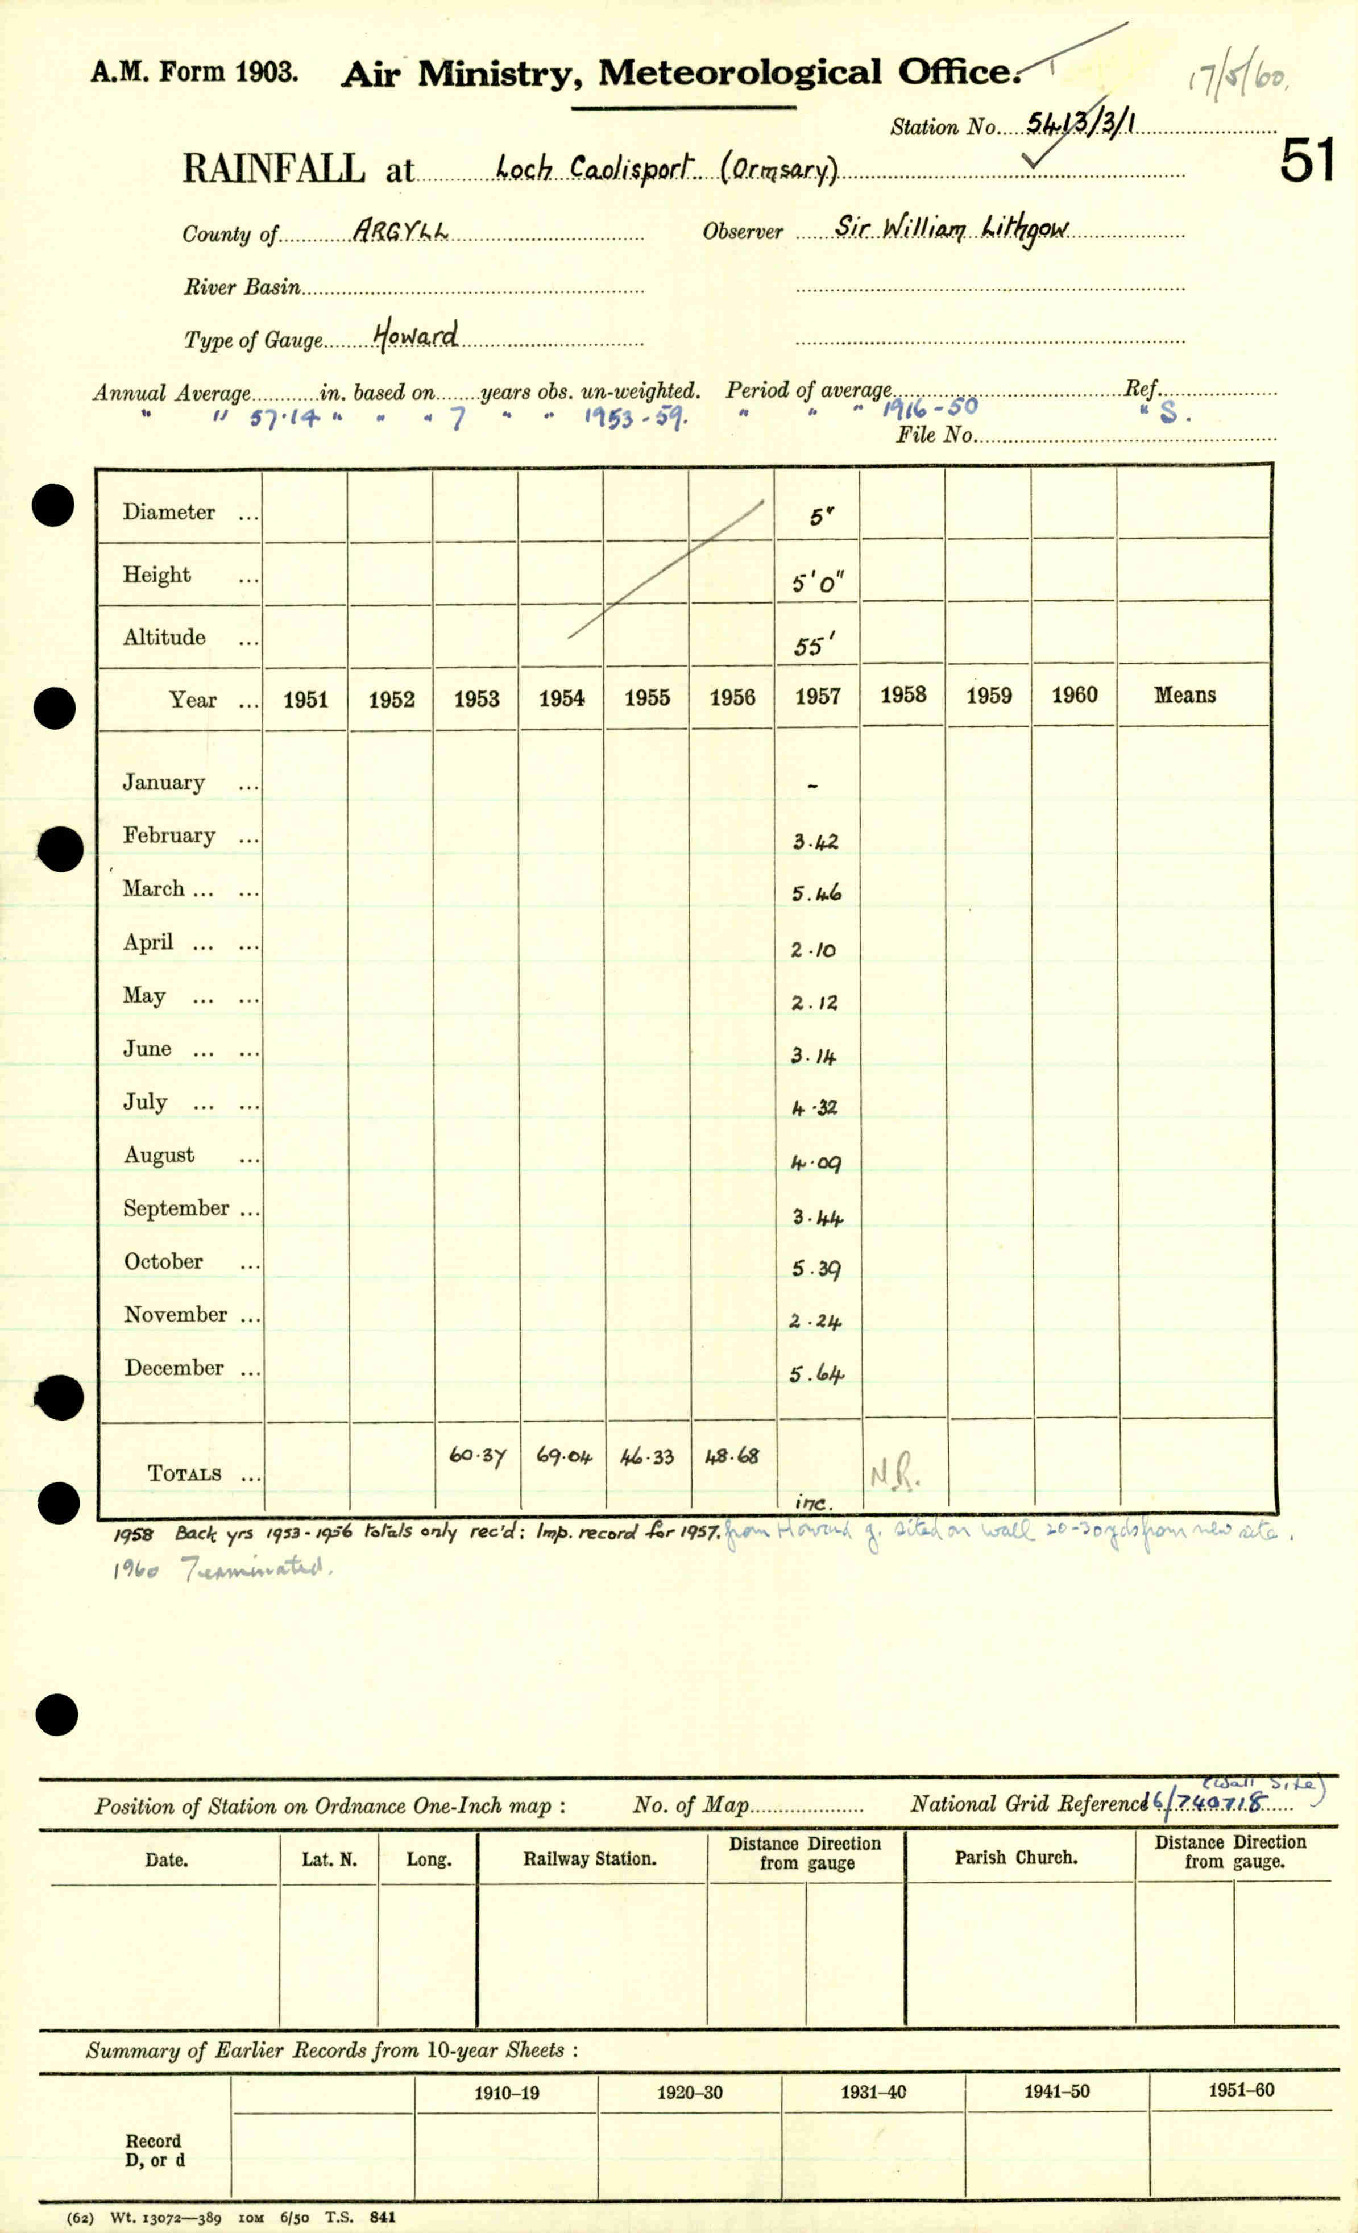 A.M. Form 1903. Air Ministry, Meteorological Office. 17/5/60.
Station No. 5413/3/1
51
RAINFALL at Loch Caolisport (Ormsary)
County of ARGYLL Observer Sir William Lithgow
River Basin
Type of Gauge Howard
Annual Average in. based on years obs. un-weighted. Period of average Ref.
" " 57.14 " " " 7 " " 1953-59. " " " 1916-50 " S.
File No.
Diameter ... 5"
Height ... 5'0"
Altitude ... 55'
Year ... 1951 1952 1953 1954 1955 1956 1957 1958 1959 1960 Means
January ... -
February ... 3.42
March ... ... 5.46
April ... ... 2.10
May ... ... 2.12
June ... ... 3.14
July ... ... 4.32
August ... 4.09
September ... 3.44
October ... 5.39
November ... 2.24
December ... 5.64
TOTALS ... 60.37 69.04 46.33 48.68 inc. N.R.
1958 Back yrs 1953-1956 totals only rec'd; Imp. record for 1957. from Howard g. sited on wall 20-30yds from new site.
1960 Terminated.
(Wall Site)
Position of Station on Ordnance One-Inch map : No. of Map National Grid Reference 16/740718
Date. Lat. N. Long. Railway Station. Distance from Direction gauge Parish Church. Distance from Direction gauge.
Summary of Earlier Records from 10-year Sheets :
1910–19 1920–30 1931–40 1941–50 1951–60
Record
D, or d
(62) Wt. 13072—389 10M 6/50 T.S. 841